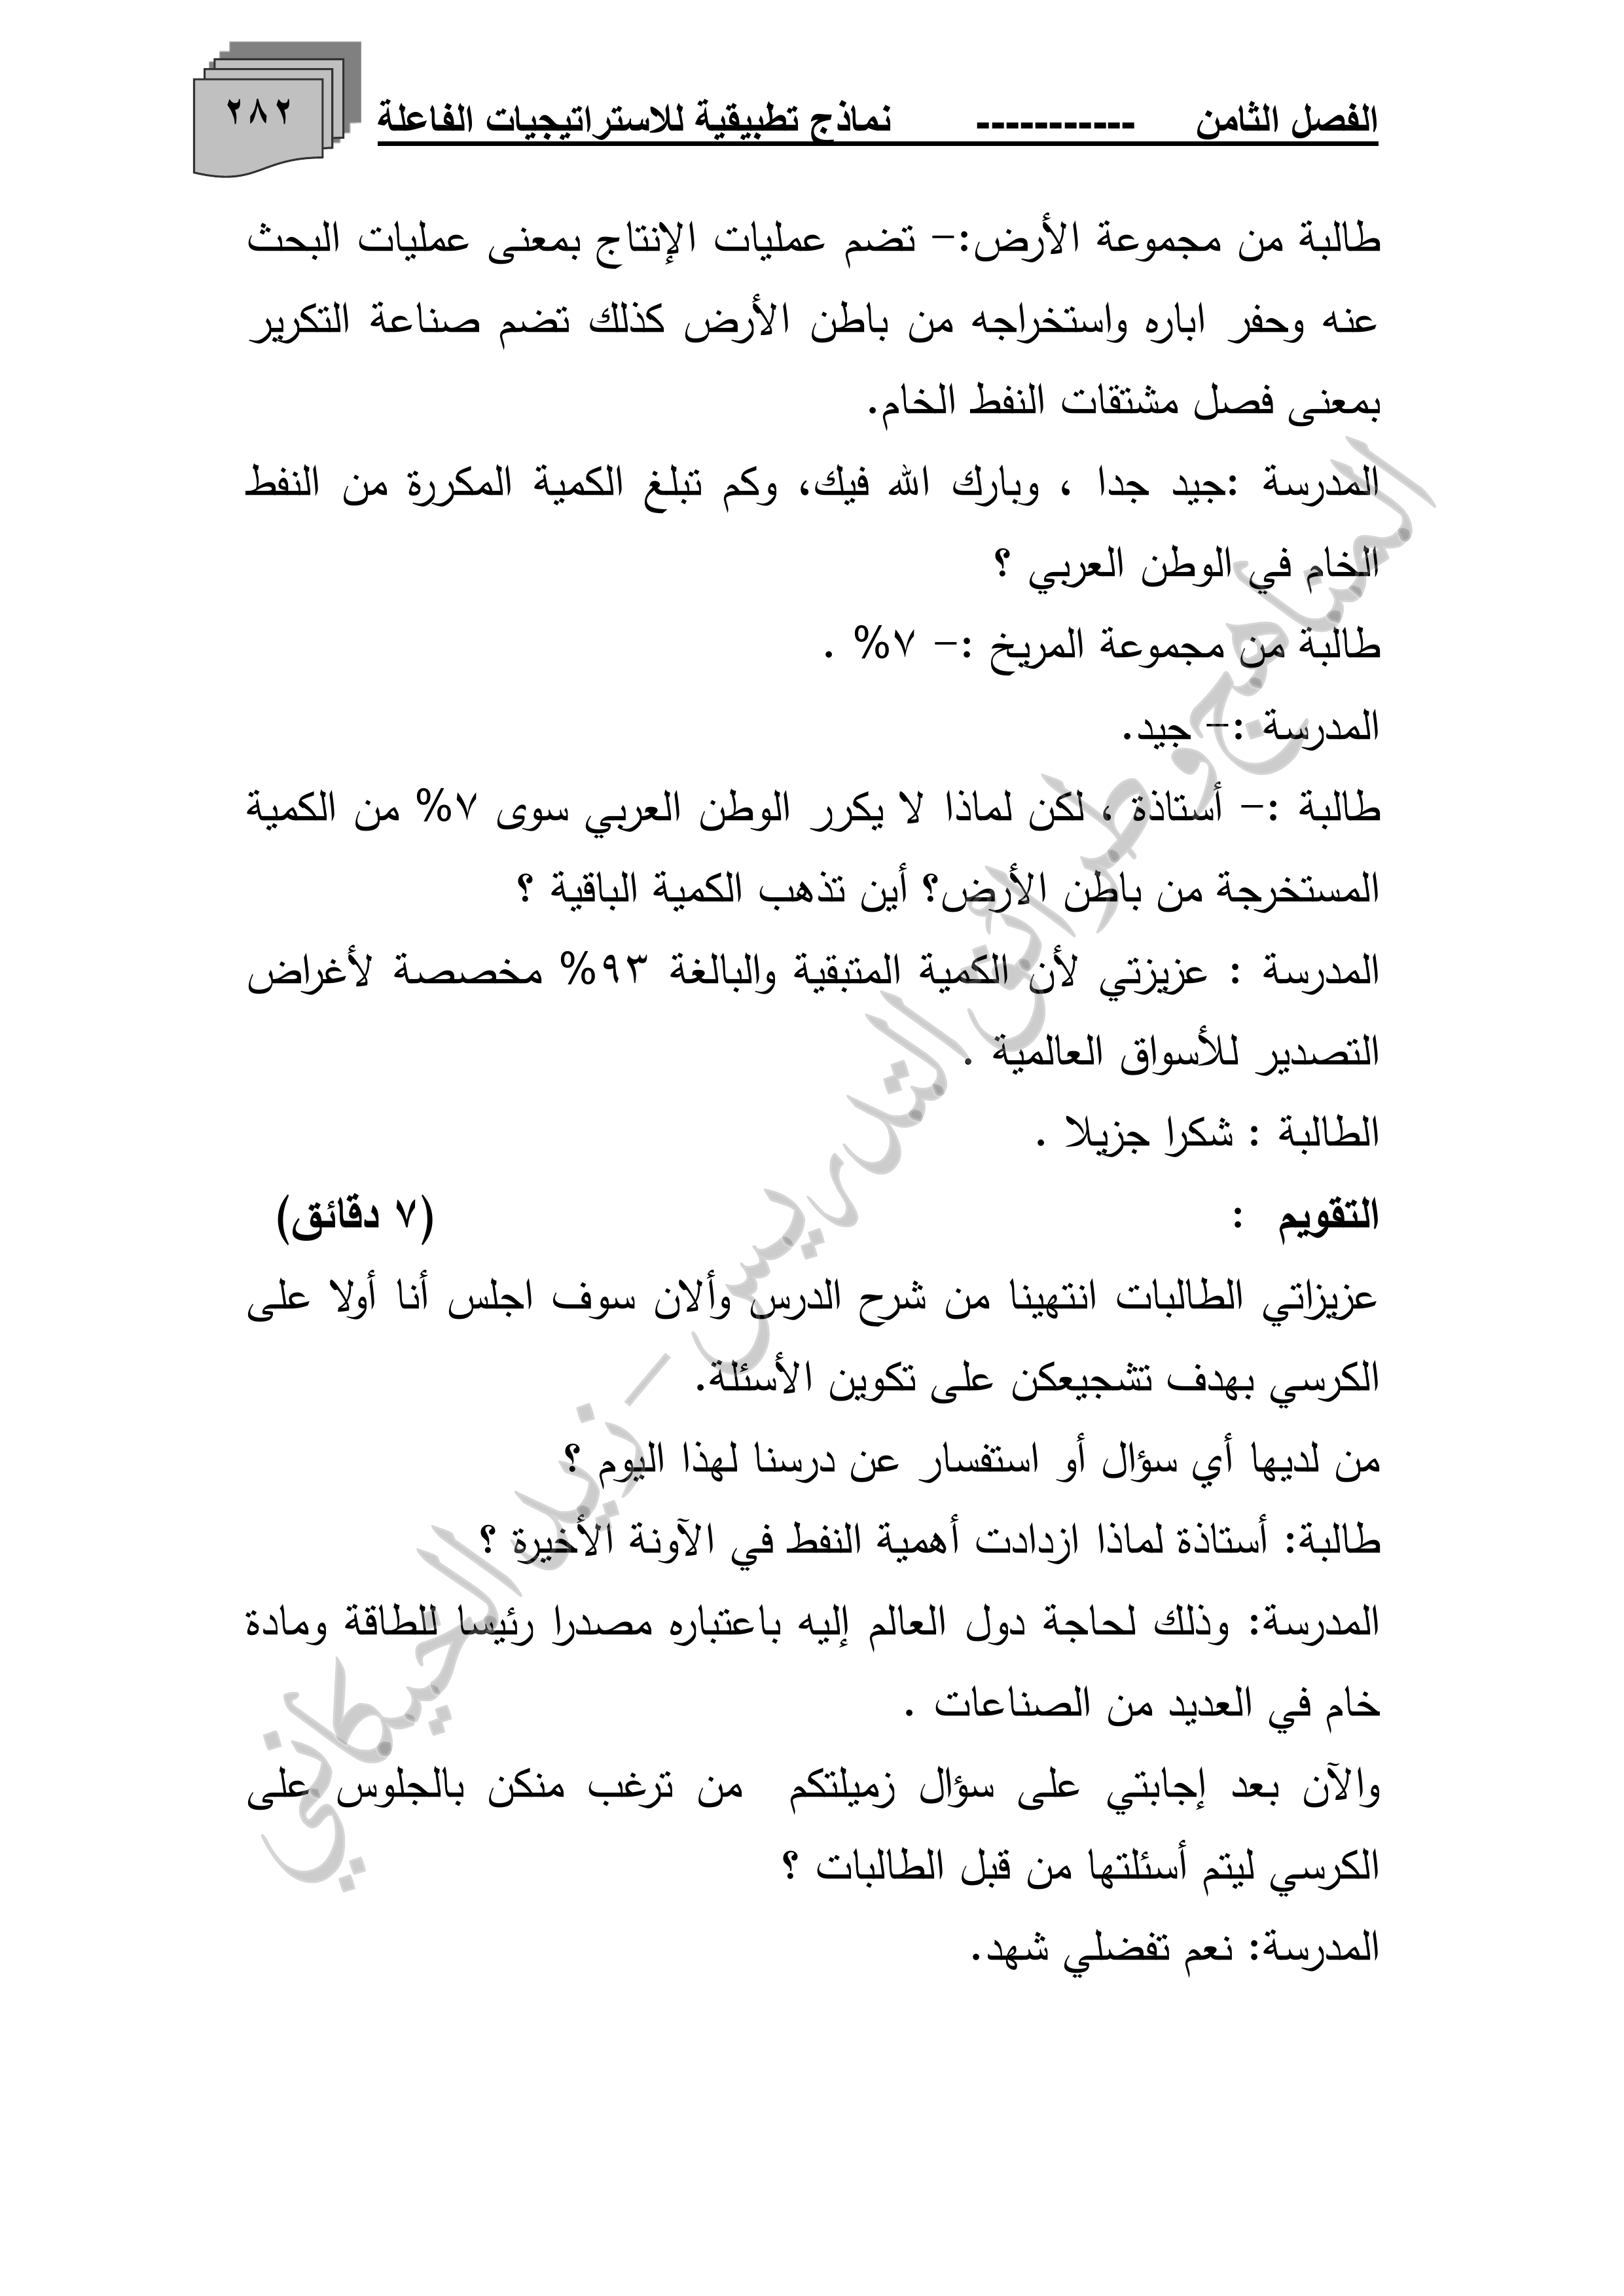 الفصل الثامن ----------- نماذج تطبيقية للاستراتيجيات الفاعلة
٢٨٢
طالبة من مجموعة الأرض:– تضم عمليات الإنتاج بمعنى عمليات البحث
عنه وحفر اباره واستخراجه من باطن الأرض كذلك تضم صناعة التكرير
بمعنى فصل مشتقات النفط الخام.
المدرسة :جيد جدا ، وبارك الله فيك، وكم تبلغ الكمية المكررة من النفط
الخام في الوطن العربي ؟
طالبة من مجموعة المريخ :– ٧% .
المدرسة :– جيد.
طالبة :– أستاذة ، لكن لماذا لا يكرر الوطن العربي سوى ٧% من الكمية
المستخرجة من باطن الأرض؟ أين تذهب الكمية الباقية ؟
المدرسة : عزيزتي لأن الكمية المتبقية والبالغة ٩٣% مخصصة لأغراض
التصدير للأسواق العالمية .
الطالبة : شكرا جزيلا .
التقويم : (٧ دقائق)
عزيزاتي الطالبات انتهينا من شرح الدرس وألان سوف اجلس أنا أولا على
الكرسي بهدف تشجيعكن على تكوين الأسئلة.
من لديها أي سؤال أو استفسار عن درسنا لهذا اليوم ؟
طالبة: أستاذة لماذا ازدادت أهمية النفط في الآونة الأخيرة ؟
المدرسة: وذلك لحاجة دول العالم إليه باعتباره مصدرا رئيسا للطاقة ومادة
خام في العديد من الصناعات .
والآن بعد إجابتي على سؤال زميلتكم من ترغب منكن بالجلوس على
الكرسي ليتم أسئلتها من قبل الطالبات ؟
المدرسة: نعم تفضلي شهد.
المناهج وطرائق التدريس - زيد الخيكاني